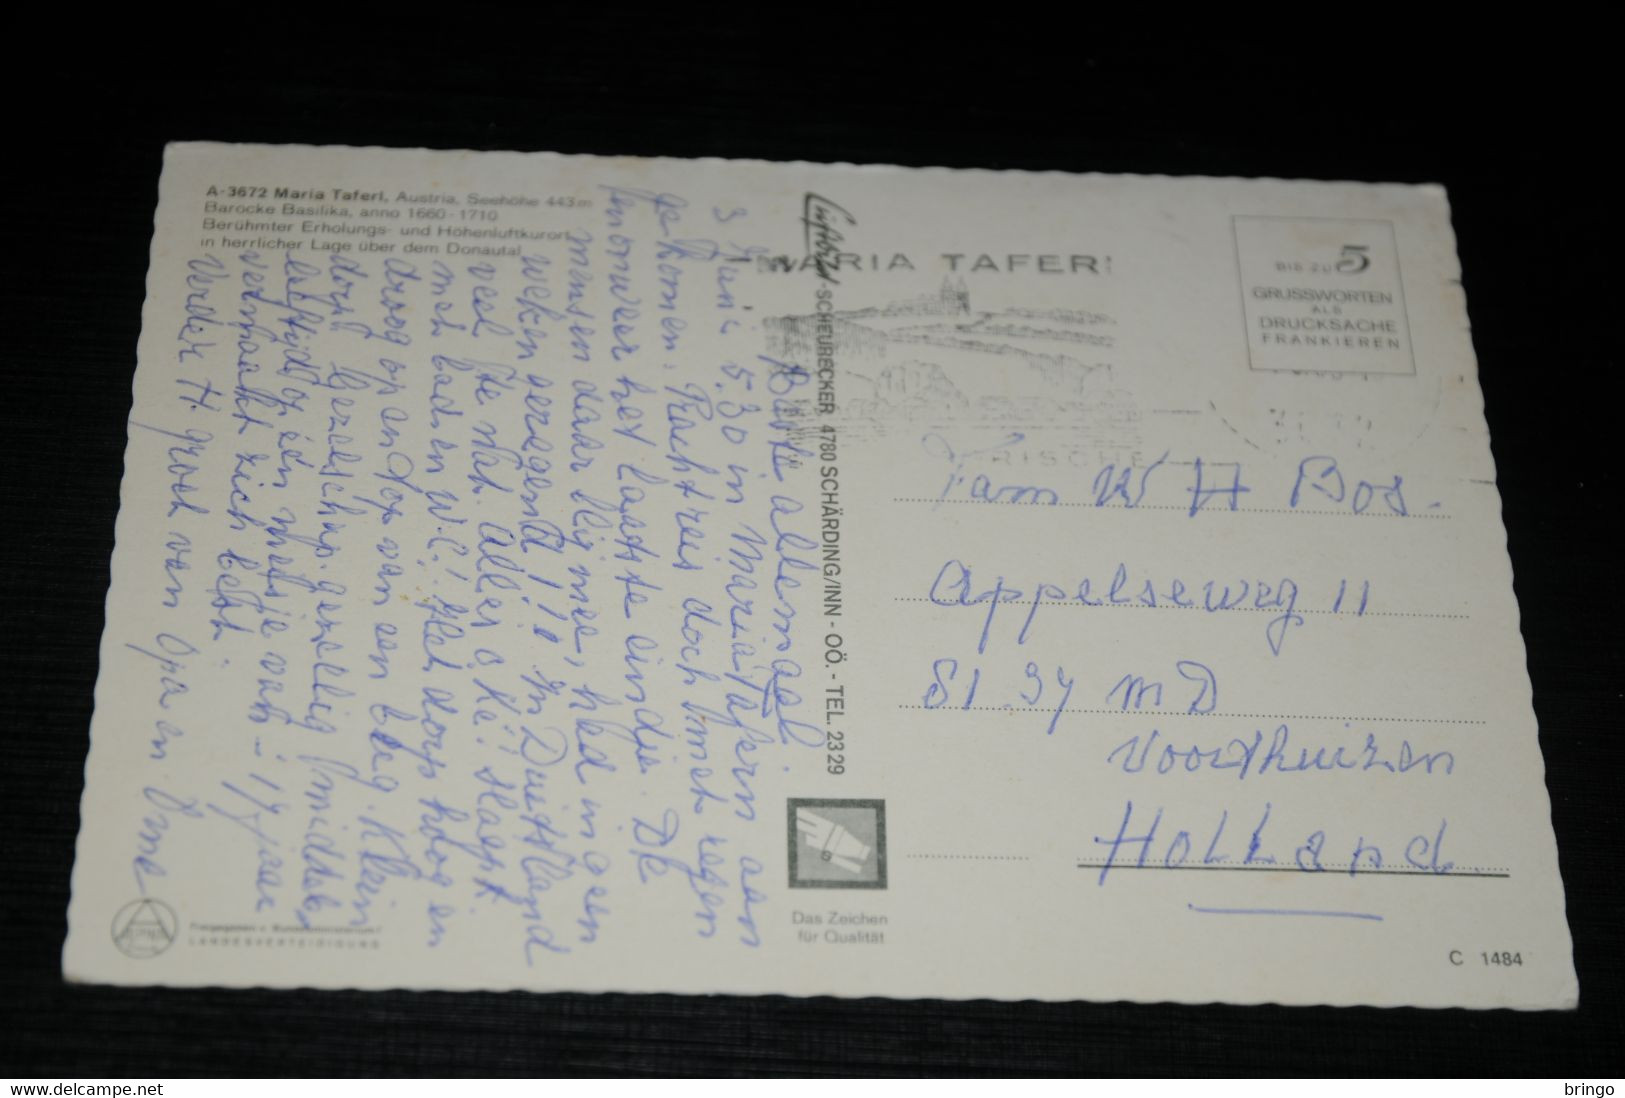 A-3672 Maria Taferl, Austria, Seehöhe 443 m
Barocke Basilika, anno 1660-1710
Berühmter Erholungs- und Höhenluftkurort
in herrlicher Lage über dem Donautal
Beste allemaal.
3 Juni 5.30 in Maria Taferl aan
gekomen. Nachtreis doch met regen
onweer het laatste eindje. De
mensen daar blij mee, had in geen
weken geregend!! In Duitsland
veel te nat. Alles oké! Slaapk.
met bad en W.C.! Het dorp hoog en
droog op een top van een berg. Klein
dorp. Gezelschap gezellig, middelb
leeftijd & één meisje van 17 jaar
vermaakt zich best.
Verder H. groet van Opa en Oma
Luftbild-SCHEURECKER 4780 SCHÄRDING/INN - OÖ. - TEL. 2329
MARIA TAFERL
FRISCHE
BIS ZU 5
GRUSSWORTEN
ALS
DRUCKSACHE
FRANKIEREN
Fam W H Bos.
Appelseweg 11
81.34 MD
Voorthuizen
Holland.
Das Zeichen
für Qualität
Freigegeben v. Bundesministerium f.
LANDESVERTEIDIGUNG
C 1484
https://www.delcampe.net
bringo